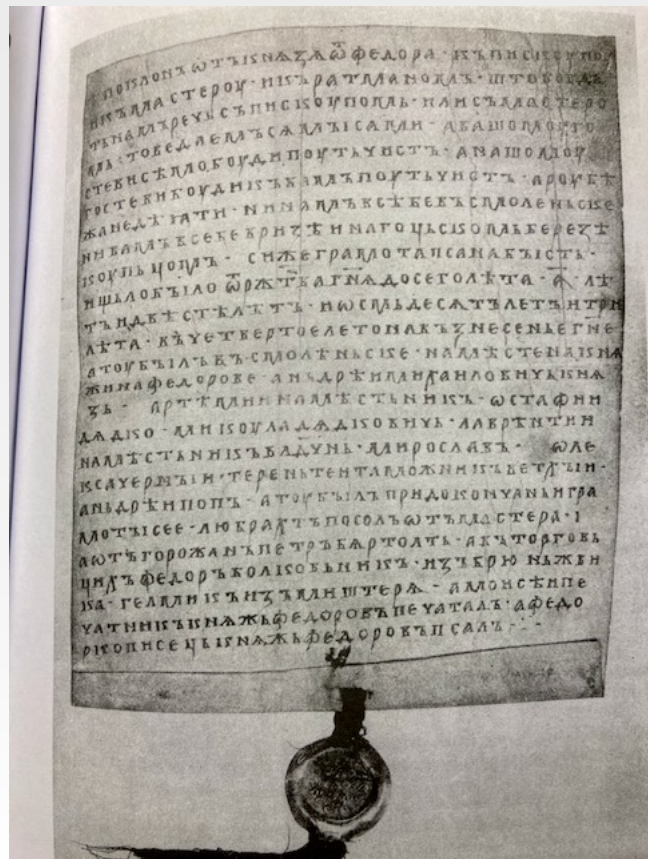 поклонъ ѿтъ кнѧзѧ ѿ федора · къ пискоупоу
и къ мастероу · и къ ратманомъ · што боуде
ть намъ речи съ пискоупомь · или съ мастеро
мь · то ведаемъ сѧ мы сами · а вашомоу го
стеви сѣмо боуди поуть чистъ · а нашомоу
гостеви боуди къ вамъ поуть чистъ · а роубѣ
жа не дѣꙗти · ни намъ в себе въ смоленьске
ни вамъ в себе в ризѣ и на гоцьскомь березѣ
коупьцомъ · си же грамота псана бысть ·
ишьло было ѿ ржт҃ва гн҃ѧ до сего лѣта · а҃ · лѣ
тъ и двѣстѣ лѣтъ · и ѡсмьдесѧтъ летъ и три
лѣта · въ четвертое лето на възнесенье гн҃е
а тоу былъ въ смолѣньске · на мѣсте на кнѧ
жи на федорове · аньдрѣи михаиловичь кнѧ
зь · артѣмии намѣстьникъ · ѡстафии
дѧдко · микоула дѧдковичь · лаврентии
намѣстьникъ владычнь · мирославъ · ѡле
кса черныи · тереньтеи таможникъ ветхыи ·
аньдрѣи попъ · а тоу былъ при докончаньи гра
моты сее · любрахтъ посолъ ѿтъ мастера ·
а ѿтъ горожанъ петръ бѧртолть · а въ торговь
цихъ федоръ волковьникъ · изъ брюньжви
ка · гелмикъ изъ миштерѧ · а моисѣи пе
чатникъ кнѧжь федоровъ печаталъ · а федо
рко писець кнѧжь федоровъ псалъ ·